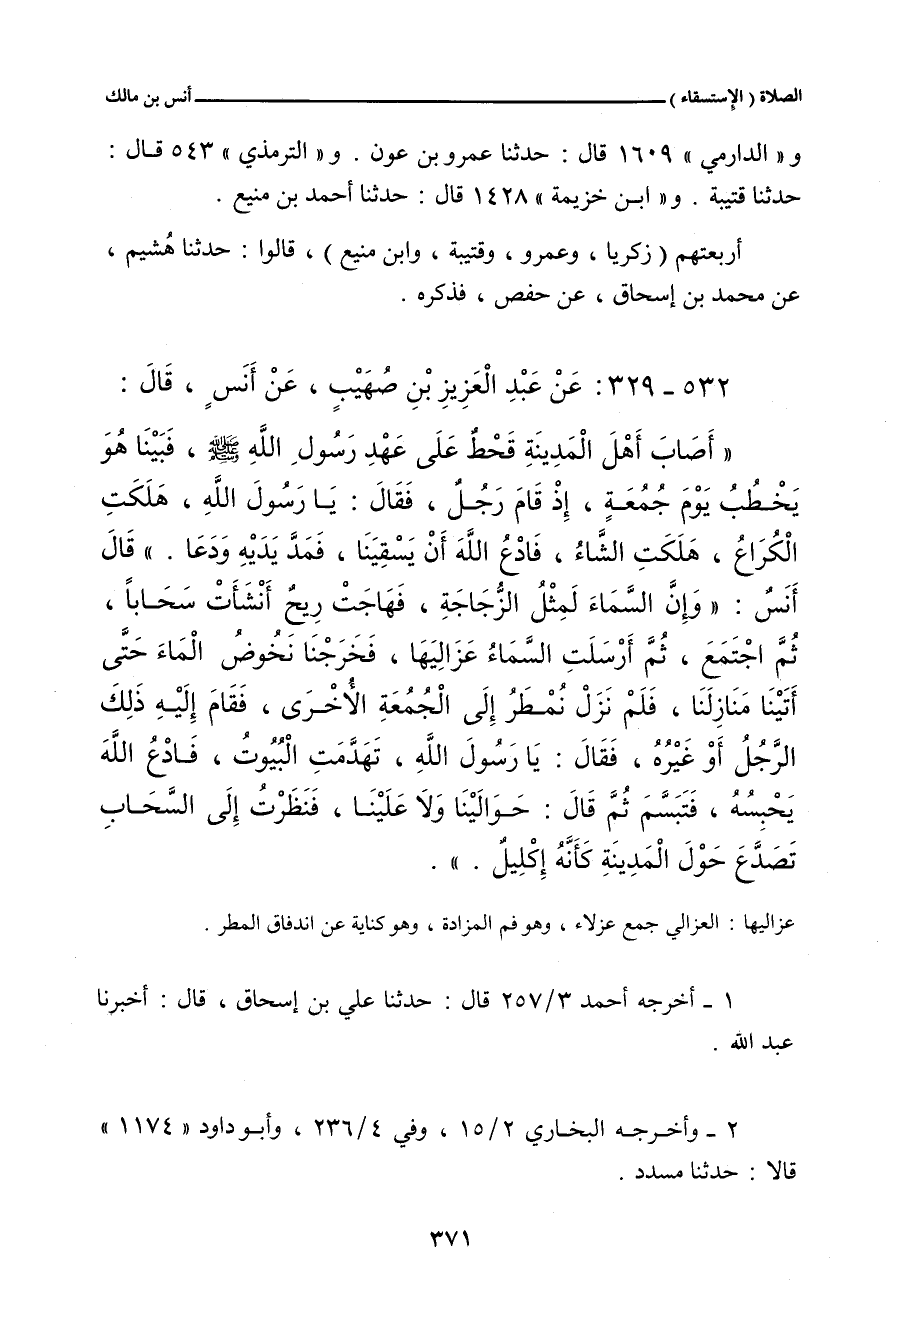 الصلاة ( الإستسقاء ) ــــــــــــــــــــ أنس بن مالك
و « الدارمي » ١٦٠٩ قال : حدثنا عمرو بن عون . و « الترمذي » ٥٤٣ قال :
حدثنا قتيبة . و« ابن خزيمة » ١٤٢٨ قال : حدثنا أحمد بن منيع .
أربعتهم ( زكريا ، وعمرو ، وقتيبة ، وابن منيع ) ، قالوا : حدثنا هُشيم ،
عن محمد بن إسحاق ، عن حفص ، فذكره .
٥٣٢ ـ ٣٢٩: عَنْ عَبْدِ الْعَزِيزِ بْنِ صُهَيْبٍ ، عَنْ أَنَسٍ ، قَالَ :
« أَصَابَ أَهْلَ الْمَدِينَةِ قَحْطٌ عَلَى عَهْدِ رَسُولِ اللَّهِ ﷺ ، فَبَيْنَا هُوَ
يَخْطُبُ يَوْمَ جُمُعَةٍ ، إِذْ قَامَ رَجُلٌ ، فَقَالَ : يَا رَسُولَ اللَّهِ ، هَلَكَتِ
الْكُرَاعُ ، هَلَكَتِ الشَّاءُ ، فَادْعُ اللَّهَ أَنْ يَسْقِيَنَا ، فَمَدَّ يَدَيْهِ وَدَعَا . » قَالَ
أَنَسٌ : « وَإِنَّ السَّمَاءَ لَمِثْلُ الزُّجَاجَةِ ، فَهَاجَتْ رِيحٌ أَنْشَأَتْ سَحَاباً ،
ثُمَّ اجْتَمَعَ ، ثُمَّ أَرْسَلَتِ السَّمَاءُ عَزَالِيَهَا ، فَخَرَجْنَا نَخُوضُ الْمَاءَ حَتَّى
أَتَيْنَا مَنَازِلَنَا ، فَلَمْ نَزَلْ نُمْطَرُ إِلَى الْجُمُعَةِ الأُخْرَى ، فَقَامَ إِلَيْهِ ذَلِكَ
الرَّجُلُ أَوْ غَيْرُهُ ، فَقَالَ : يَا رَسُولَ اللَّهِ ، تَهَدَّمَتِ الْبُيُوتُ ، فَادْعُ اللَّهَ
يَحْبِسُهُ ، فَتَبَسَّمَ ثُمَّ قَالَ : حَوَالَيْنَا وَلَا عَلَيْنَا ، فَنَظَرْتُ إِلَى السَّحَابِ
تَصَدَّعَ حَوْلَ الْمَدِينَةِ كَأَنَّهُ إِكْلِيلٌ . » .
عزاليها : العزالي جمع عزلاء ، وهو فم المزادة ، وهو كناية عن اندفاق المطر .
١ ـ أخرجه أحمد ٢٥٧/٣ قال : حدثنا علي بن إسحاق ، قال : أخبرنا
عبد الله .
٢ ـ وأخرجه البخاري ١٥/٢ ، وفي ٢٣٦/٤ ، وأبو داود « ١١٧٤ »
قالا : حدثنا مسدد .
٣٧١